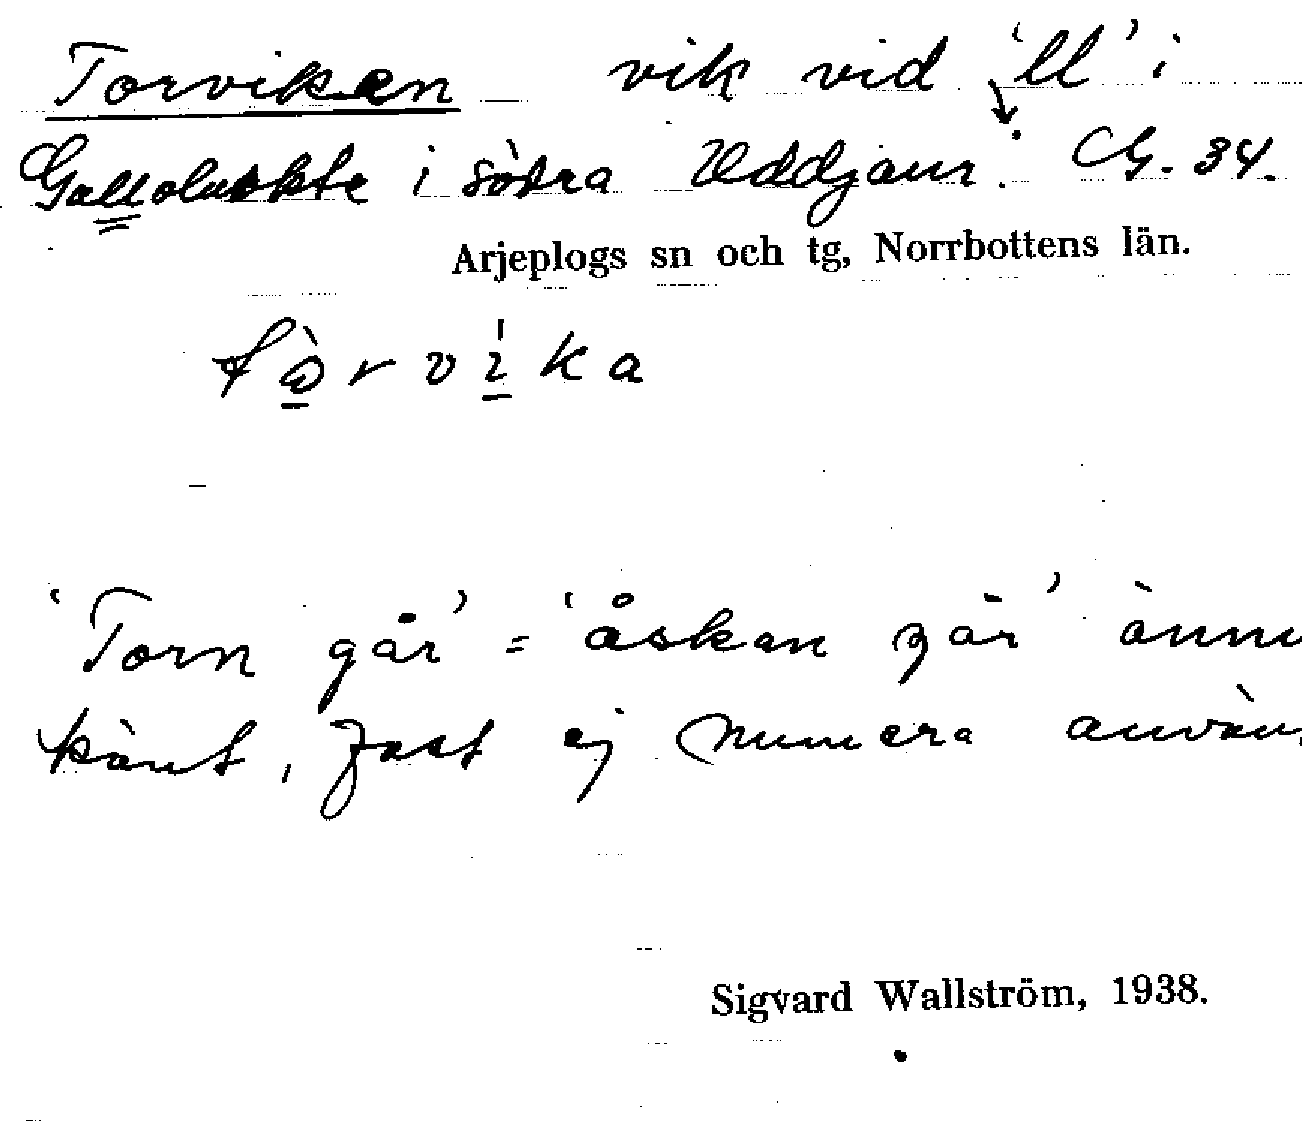 Torviken vik vid 'll' i
Galloluokte i södra Uddjaur. G. 34.
Arjeplogs sn och tg, Norrbottens län.
'Torn går' = 'åskan går' ännu
känt, fast ej numera använ
Sigvard Wallström, 1938.